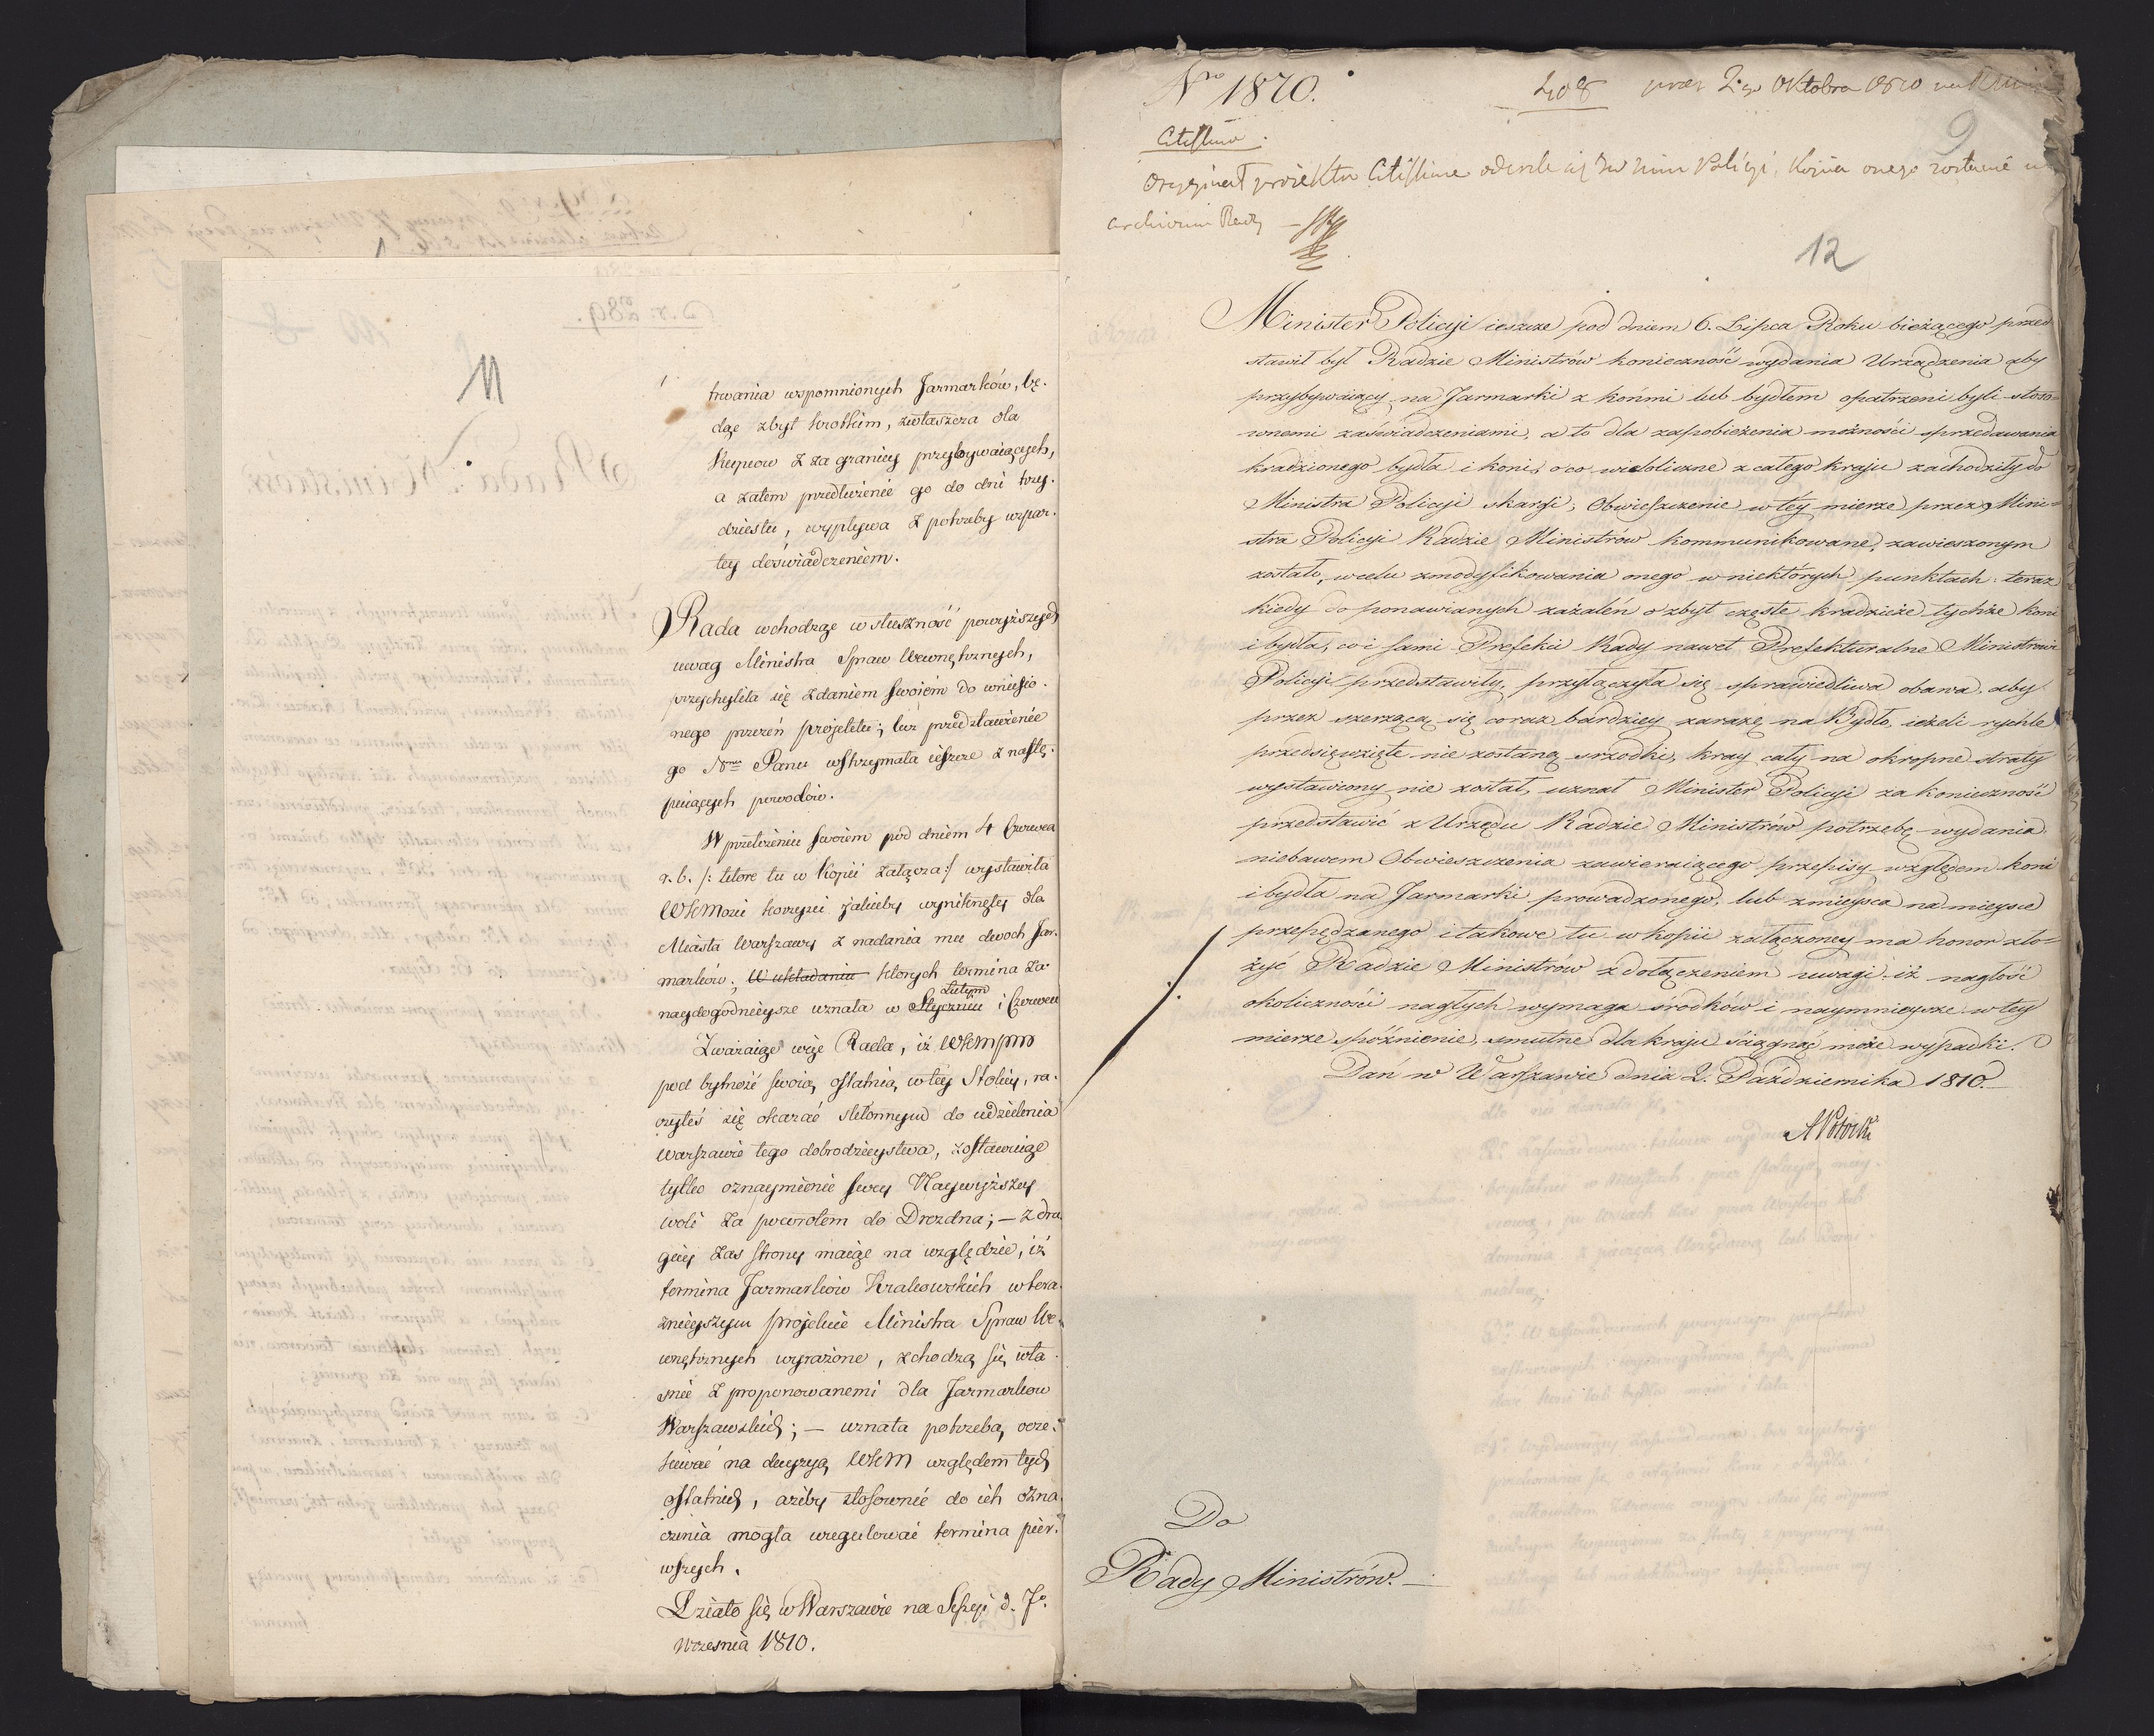 11
trwania wspomnionych Jarmarków, bę-
dąc zbyt krotkim, zwłaszcza dla
Kupcow z za granicy przybywaiących,
a zatem przedłużenie go do dni trzy-
dziestu, wypływa z potrzeby wspar-
tey doświadczeniem.
Rada wchodząc w słuszność powyższych
uwag Ministra Spraw Wewnętrznych,
przychyliła się zdaniem swoiém do wniesio-
nego przezeń projektu; lecz przedstawienie
go Nmu Panu wstrzymała ieszcze z nastę-
puiących powodów.
W przełożeniu swoiem pod dniem 4 Czerwca
r. b. /: które tu w Kopii załącza :/ wystawiła
WKMości korzyści jakieby wyniknęły dla
Miasta Warszawy z nadania mu dwoch Jar-
marków; W układaniu których termina za
naydogodnieysze uznała w Styczniu Lutym i Czerwcu
Zważaiąc więc Rada, iż WKMpm
pod bytność swoią ostatnią w tey Stolicy, ra-
czyłeś się okazać skłonnym do udzielenia
Warszawie tego dobrodzieystwa, zostawuiąc
tylko oznaymienie swey Naywyższey
woli za powrotem do Drezdna; — z dru-
giey zas strony maiąc na względzie, iż
termina Jarmarków Krakowskich w tera-
znieyszym projekcie Ministra Spraw We-
wnętrznych wyrażone, schodzą się wła-
śnie z proponowanemi dla Jarmarkow
Warszawskich; — uznała potrzebą ocze-
kiwać na decyzyą WKM względem tych
ostatnich, ażeby stosownie do ich ozna-
czenia mogła uregulować termina pier-
wszych.
Działo się w Warszawie na Sessyi d. 7o
Września 1810.
No 1870.
408 praes 2go Oktobra 1810
9
Citissime.
Oryginał proiektu Citissime odesłał się Policyi, Kopia onego zostanie w
archiwum Rady
12
Minister Policyi ieszcze pod dniem 6. Lipca Roku bieżącego przed
stawił był Radzie Ministrów konieczność wydania Urządzenia aby
przybywaiący na Jarmarki z końmi lub bydłem opatrzeni byli stoso=
wnemi zaświadczeniami, a to dla zapobieżenia możności sprzedawania
kradzionego bydła i koni, o co wieloliczne z całego kraju zachodziły do
Ministra Policyi skargi; Obwieszczenie w téy mierze przez Mini=
stra Policyi Radzie Ministrów kommunikowane, zawieszonym
zostało, w celu zmodyfikowania onego w niektórych punktach: teraz
kiedy do ponawianych zażaleń o zbyt częste kradzieże tychże koni
i bydła, co i sami Prefekci Rady nawet Prefekturalne Ministrowi
Policyi przedstawiły, przyłączyła się sprawiedliwa obawa, aby
przez szerzącą się coraz bardziey zarazę na Bydło, ieżeli rychłe
przedsięwzięte nie zostaną srzodki, kray cały na okropne straty
wystawiony nie został, uznał Minister Policyi za konieczność
przedstawić z Urzędu Radzie Ministrów potrzebę wydania
niebawem Obwieszczenia zawieraiącego przepisy względem koni
i bydła na Jarmarki prowadzonego, lub z mieysca na mieysce
przepędzanego i takowe tu w kopii załączoney ma honor zło=
żyć Radzie Ministrów z dołączeniem uwagi iż nagłość
okoliczności nagłych wymaga środków i naymnieysze w tey
mierze spóźnienie, smutne dla kraju ściągnąć może wypadki.
Dań w Warszawie dnia 2. Października 1810.
APotocki
Do
Rady Ministrów.